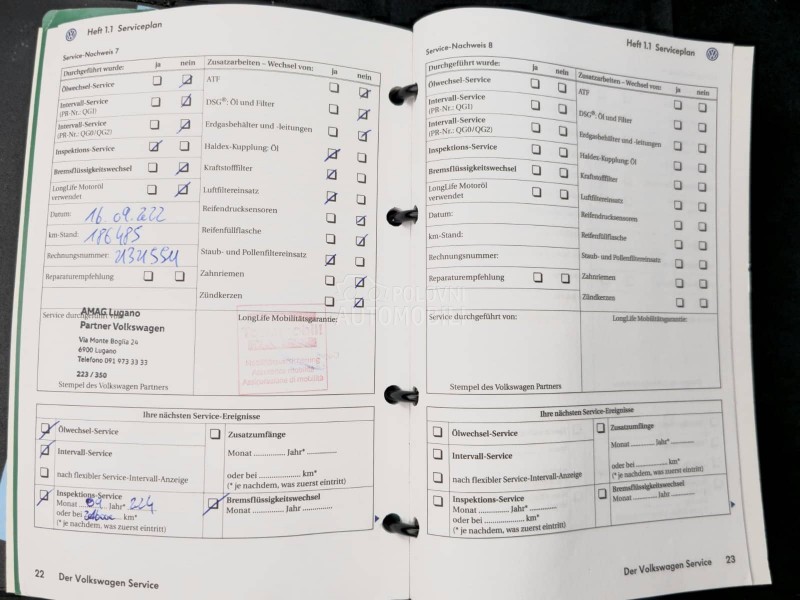 Heft 1.1 Serviceplan
Service-Nachweis 7
Durchgeführt wurde: ja nein
Ölwechsel-Service
Intervall-Service
(PR-Nr.: QG1)
Intervall-Service
(PR-Nr.: QG0/QG2)
Inspektions-Service
Bremsflüssigkeitswechsel
LongLife Motoröl
verwendet
Datum: 16.09.222
km-Stand: 186485
Rechnungsnummer:
Reparaturempfehlung
Zusatzarbeiten – Wechsel von: ja nein
ATF
DSG®: Öl und Filter
Erdgasbehälter und -leitungen
Haldex-Kupplung: Öl
Kraftstofffilter
Luftfiltereinsatz
Reifendrucksensoren
Reifenfüllflasche
Staub- und Pollenfiltereinsatz
Zahnriemen
Zündkerzen
Service durchgeführt von:
AMAG Lugano
Partner Volkswagen
Via Monte Boglia 24
6900 Lugano
Telefono 091 973 33 33
223 / 350
Stempel des Volkswagen Partners
LongLife Mobilitätsgarantie:
Ihre nächsten Service-Ereignisse
Ölwechsel-Service
Intervall-Service
nach flexibler Service-Intervall-Anzeige
Inspektions-Service
Monat 09 Jahr* 224
oder bei km*
(* je nachdem, was zuerst eintritt)
Zusatzumfänge
Monat Jahr*
oder bei km*
(* je nachdem, was zuerst eintritt)
Bremsflüssigkeitswechsel
Monat Jahr
22 Der Volkswagen Service
Heft 1.1 Serviceplan
Service-Nachweis 8
Durchgeführt wurde: ja nein
Ölwechsel-Service
Intervall-Service
(PR-Nr.: QG1)
Intervall-Service
(PR-Nr.: QG0/QG2)
Inspektions-Service
Bremsflüssigkeitswechsel
LongLife Motoröl
verwendet
Datum:
km-Stand:
Rechnungsnummer:
Reparaturempfehlung
Zusatzarbeiten – Wechsel von: ja nein
ATF
DSG®: Öl und Filter
Erdgasbehälter und -leitungen
Haldex-Kupplung: Öl
Kraftstofffilter
Luftfiltereinsatz
Reifendrucksensoren
Reifenfüllflasche
Staub- und Pollenfiltereinsatz
Zahnriemen
Zündkerzen
Service durchgeführt von:
Stempel des Volkswagen Partners
LongLife Mobilitätsgarantie:
Ihre nächsten Service-Ereignisse
Ölwechsel-Service
Intervall-Service
nach flexibler Service-Intervall-Anzeige
Inspektions-Service
Monat Jahr*
oder bei km*
(* je nachdem, was zuerst eintritt)
Zusatzumfänge
Monat Jahr*
oder bei km*
(* je nachdem, was zuerst eintritt)
Bremsflüssigkeitswechsel
Monat Jahr
Der Volkswagen Service 23
POLOVNI
AUTOMOBILI